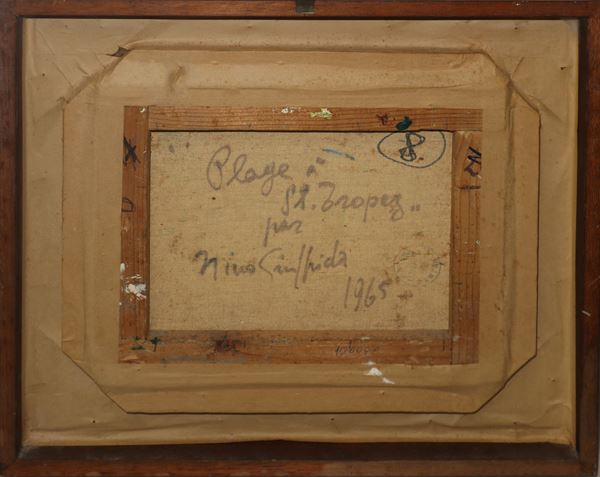 "Plage à
St. Tropez"
par
Nino Giuffrida
1965
8.